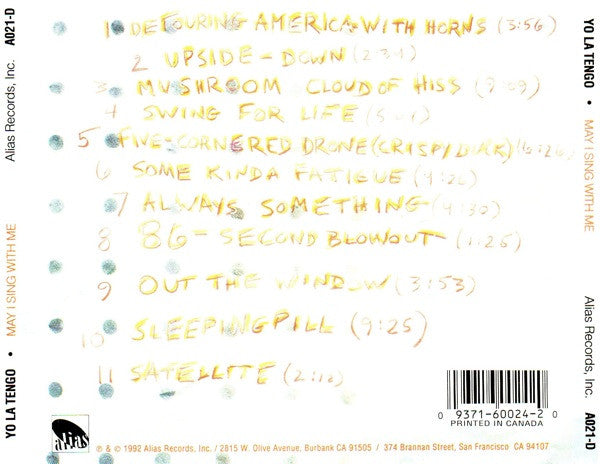 1 DETOURING AMERICA WITH HORNS (3:56)
2 UPSIDE-DOWN (2:31)
3 MUSHROOM CLOUD OF HISS (9:03)
4 SWING FOR LIFE
5 FIVE-CORNERED DRONE (CRISPY DUCK)
6 SOME KINDA FATIGUE
7 ALWAYS SOMETHING (4:30)
8 86-SECOND BLOWOUT (1:25)
9 OUT THE WINDOW (3:53)
10 SLEEPING PILL (9:25)
11 SATELLITE
YO LA TENGO • MAY I SING WITH ME
Alias Records, Inc. A021-D
YO LA TENGO • MAY I SING WITH ME
Alias Records, Inc. A021-D
alias
0 9371-60024-2 0
PRINTED IN CANADA
℗ & © 1992 Alias Records, Inc. / 2815 W. Olive Avenue, Burbank CA 91505 / 374 Brannan Street, San Francisco CA 94107